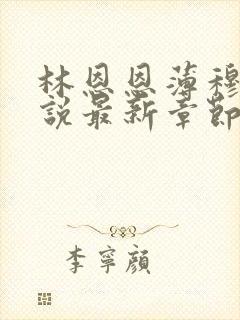 林恩恩薄穆
說最新章節
李寧顏